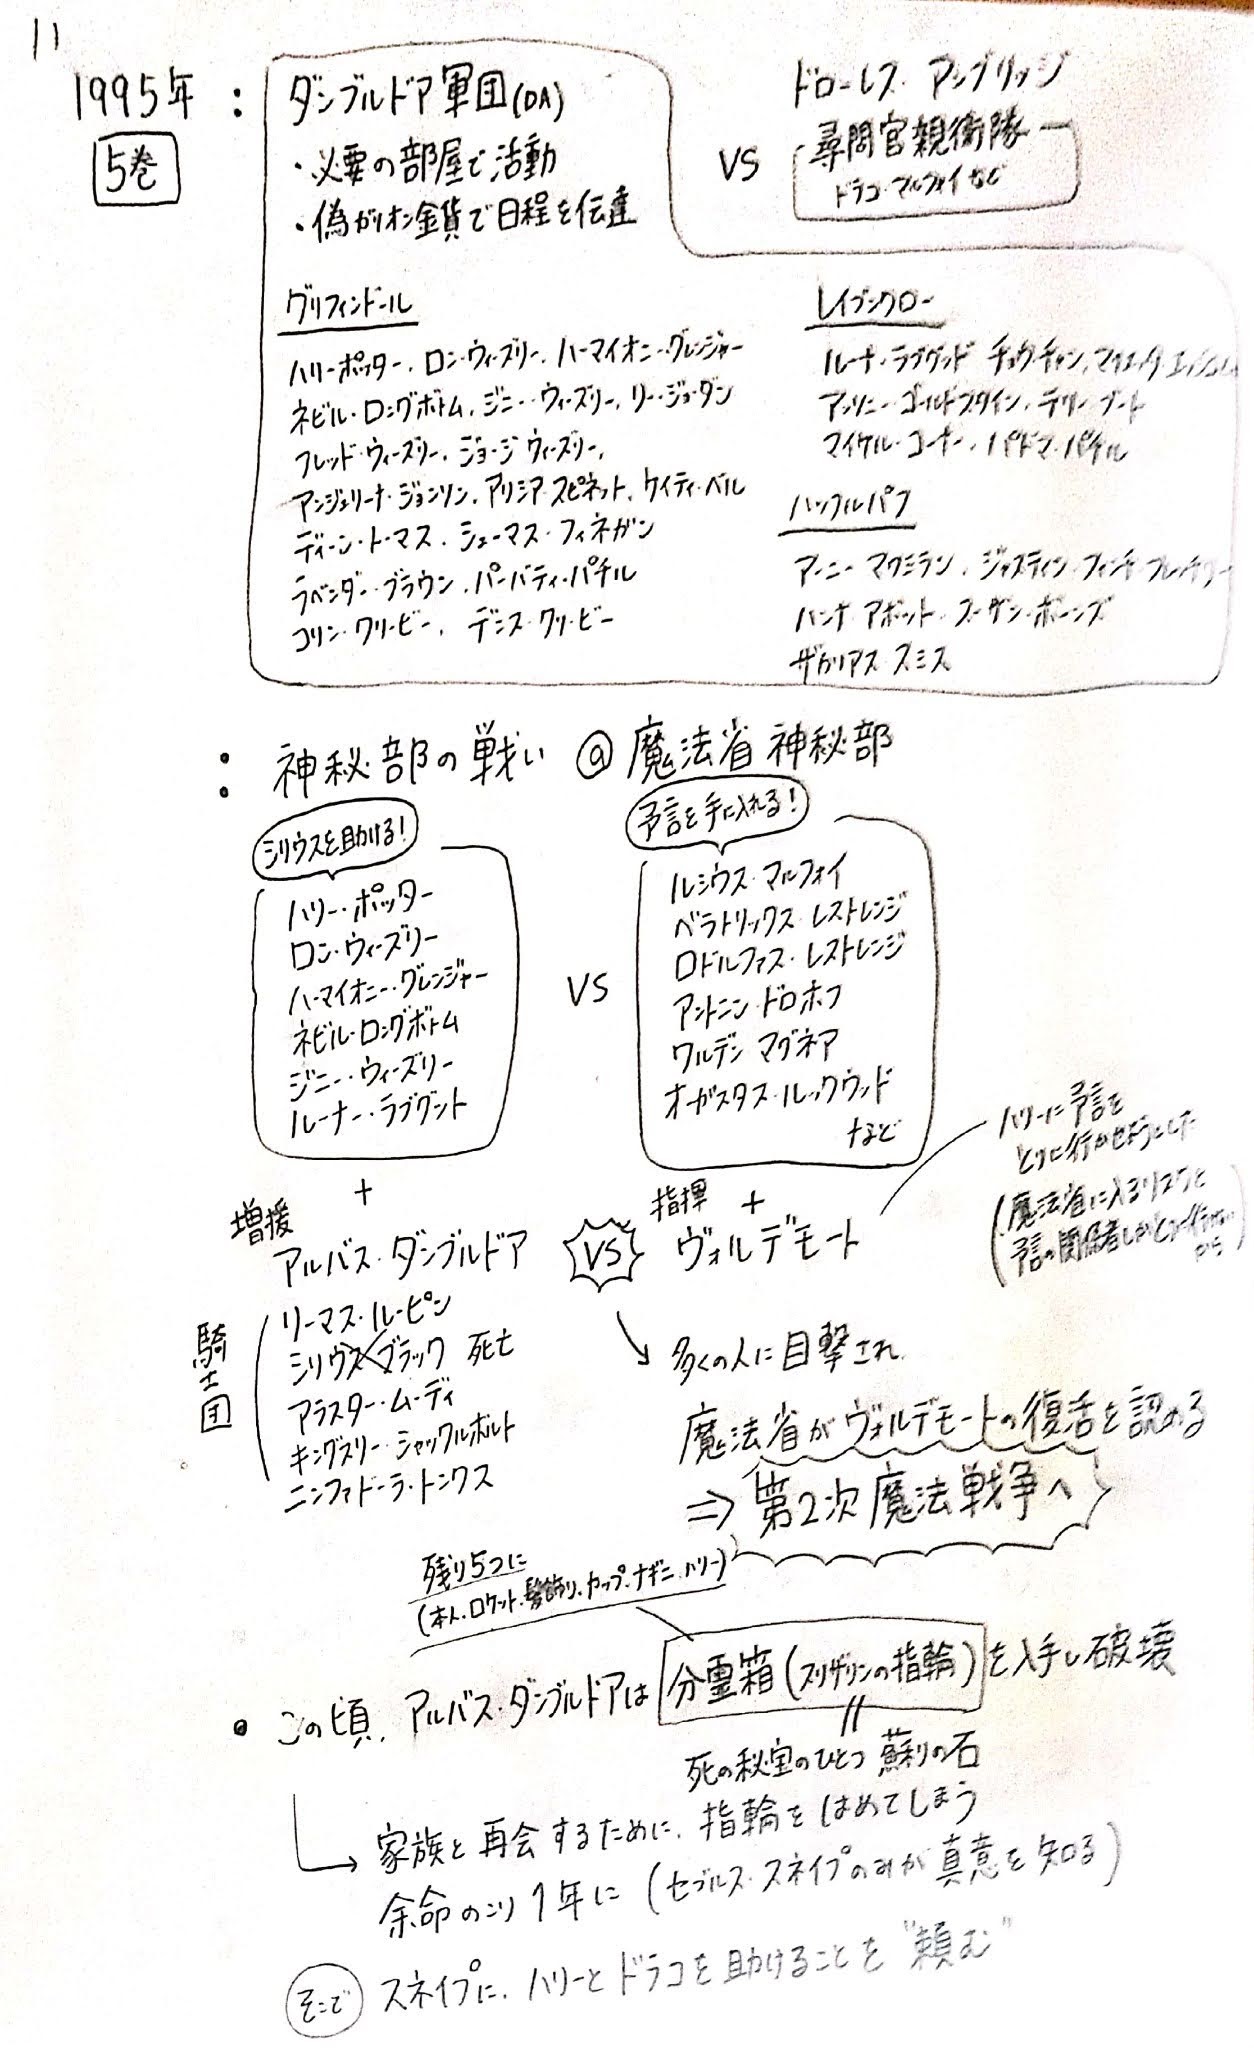 11
1995年 :
5巻
ダンブルドア軍団(DA)
・必要の部屋で活動
・偽ガリオン金貨で日程を伝達
VS
ドローレス・アンブリッジ
尋問官親衛隊
ドラコ・マルフォイなど
グリフィンドール
ハリー・ポッター、ロン・ウィーズリー、ハーマイオニー・グレンジャー
ネビル・ロングボトム、ジニー・ウィーズリー、リー・ジョーダン
フレッド・ウィーズリー、ジョージ・ウィーズリー、
アンジェリーナ・ジョンソン、アリシア・スピネット、ケイティ・ベル
ディーン・トーマス、シェーマス・フィネガン
ラベンダー・ブラウン、パーバティ・パチル
コリン・クリービー、デニス・クリービー
レイブンクロー
ルーナ・ラブグッド チョウ・チャン、マリエッタ
アンソニー・ゴールドスタイン、テリー・ブート
マイケル・コーナー、パドマ・パチル
ハッフルパフ
アーニー・マクミラン、ジャスティン・フィンチ
ハンナ・アボット、スーザン・ボーンズ
ザカリアス・スミス
: 神秘部の戦い @ 魔法省神秘部
シリウスを助ける!
ハリー・ポッター
ロン・ウィーズリー
ハーマイオニー・グレンジャー
ネビル・ロングボトム
ジニー・ウィーズリー
ルーナー・ラブグット
VS
予言を手に入れる!
ルシウス・マルフォイ
ベラトリックス・レストレンジ
ロドルファス・レストレンジ
アントニン・ドロホフ
ワルデン マグネア
オーガスタス・ルックウッド
など
+
増援
アルバス・ダンブルドア
騎士団
リーマス・ルーピン
シリウス・ブラック 死亡
アラスター・ムーディ
キングスリー・シャックルボルト
ニンファドーラ・トンクス
VS
指揮 +
ヴォルデモート
ハリーに予言を
とりに行かせようとした
(魔法省に入るリスクと
予言の関係者しかとれない
から)
↘ 多くの人に目撃され
魔法省がヴォルデモートの復活を認める
⇒ 第2次魔法戦争へ
残り5つに
(本人、ロケット、髪飾り、カップ、ナギニ、ハリー)
• この頃、アルバス・ダンブルドアは分霊箱(スリザリンの指輪)を入手し破壊
死の秘宝のひとつ 蘇りの石
→ 家族と再会するために、指輪をはめてしまう
余命のこり1年に(セブルス・スネイプのみが真意を知る)
そこで スネイプに、ハリーとドラコを助けることを"頼む"